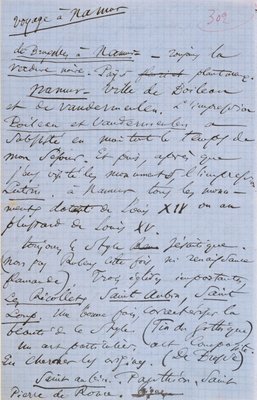 Voyage à Namur
302
de Bruxelles à Namur – toujours la
verdure noire. Pays plantureux.
Namur – Ville de Boileau
et de Vandermeulen. L'impression
Boileau et Vandermeulen a
subsisté en moi tout le temps de
mon séjour. Et puis, après que
j'eus visité les monuments, l'impression
Lutrin. à Namur tous les monu
ments datent de Louis XIV ou au
plus tard de Louis XV.
Toujours le Style Jésuitique.
(Non pas Rubens cette fois, ni renaissance
flamande). Trois églises importantes,
Les Récollets, Saint Aubin, Saint
Loup. Une bonne fois, caractériser la
beauté de ce Style. (Fin du gothique)
Un art particulier, art composite.
En chercher les origines. (De Brosse)
Saint Aubin. Panthéon, Saint
Pierre de Rome.